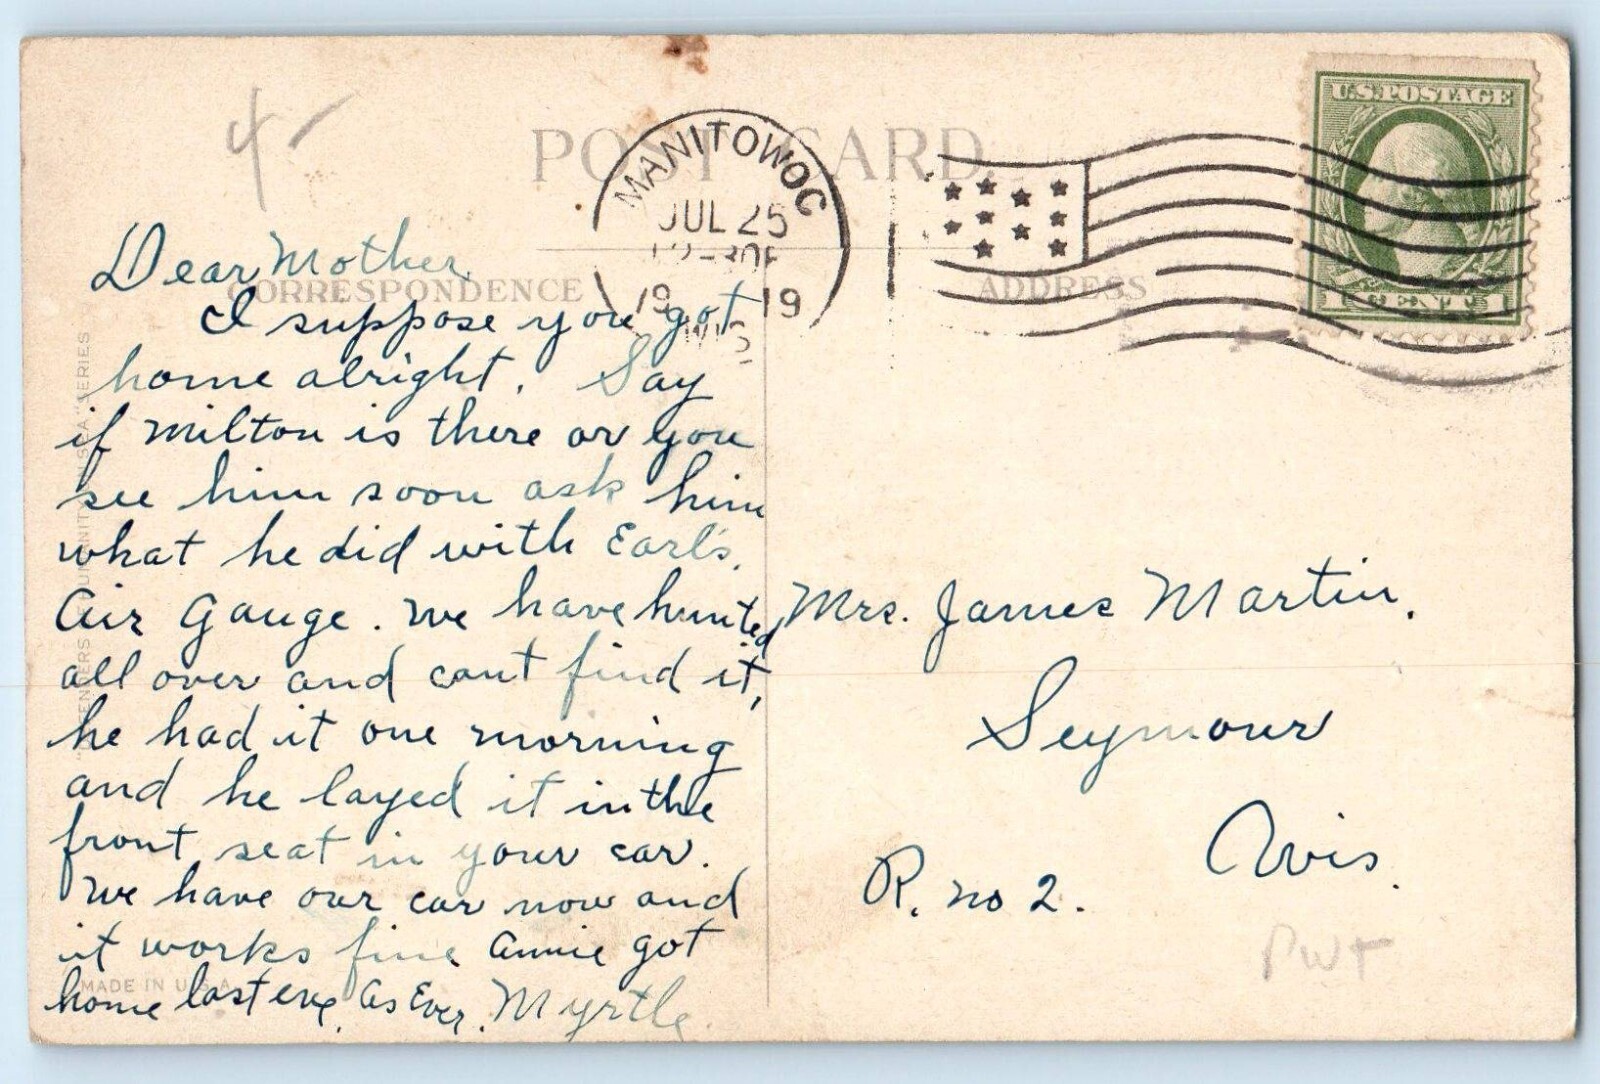 4-
POST CARD
MANITOWOC
JUL 25
12-30P
19 19
WIS
U.S. POSTAGE
1 CENT 1
CORRESPONDENCE
ADDRESS
Dear Mother,
I suppose you got
home alright. Say
if Milton is there or you
see him soon ask him
what he did with Earl's.
Air Gauge. We have hunted
all over and cant find it,
he had it one morning
and he layed it in the
front seat in your car.
We have our car now and
it works fine Annie got
home last eve, As Ever. Myrtle.
Mrs. James Martin.
Seymour
Wis.
R. no 2.
PWT
MADE IN U.S.A.